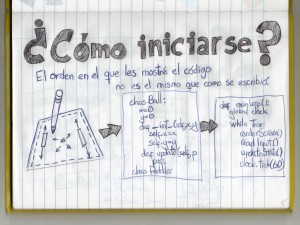 ¿Cómo iniciarse?
El orden en el que les mostré el código
no es el mismo que como se escribió.
class Ball:
x=0
y=0
def __init__(self,x,y)
self.x=x
self.y=y
def update(self,p
pass
class Paddle:
def main():
global clock
while True:
renderScreen()
readInput()
updateState()
clock.tick(60)